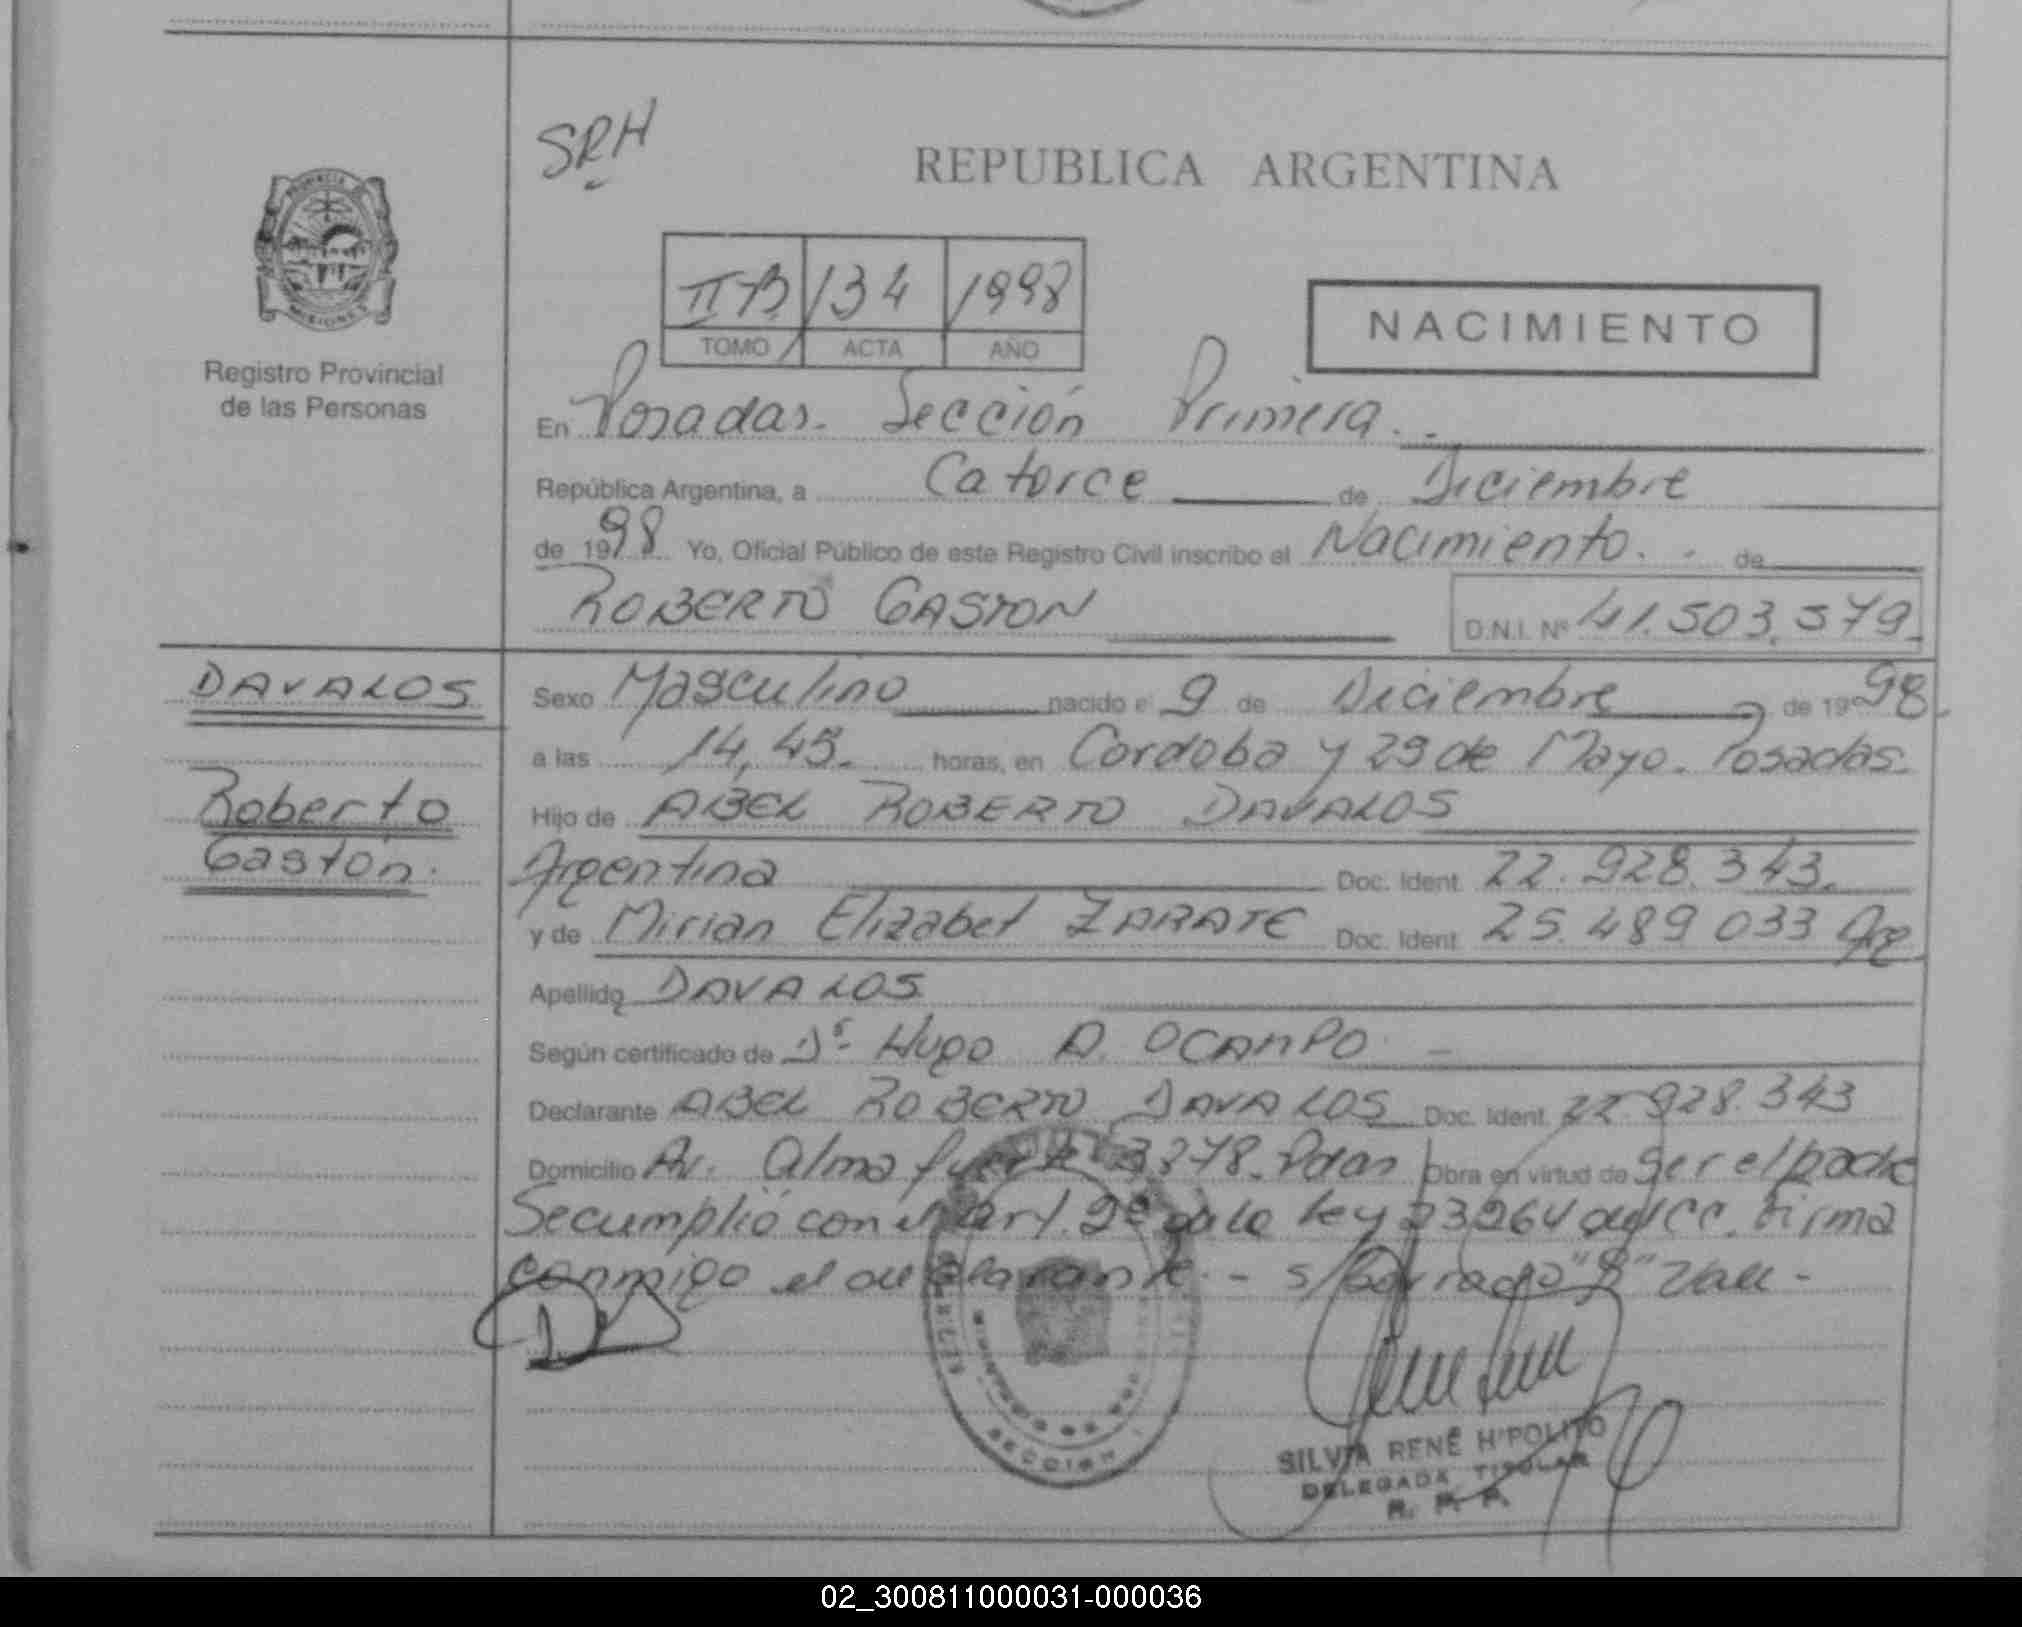 SRH
REPUBLICA ARGENTINA
PROVINCIA DE
MISIONES
Registro Provincial
de las Personas
II B 134 1998
TOMO ACTA AÑO
NACIMIENTO
En Posadas. Sección Primera.
República Argentina, a Catorce de Diciembre
de 1998 Yo, Oficial Público de este Registro Civil inscribo el Nacimiento. de
ROBERTO GASTON D.N.I. Nº 41.503.579
DAVALOS
Roberto
Gastón.
Sexo Masculino nacido el 9 de Diciembre de 1998.
a las 14,45. horas, en Cordoba y 29 de Mayo. Posadas.
Hijo de ABEL ROBERTO DAVALOS
Argentina Doc. Ident. 22.928.343.
y de Mirian Elizabet ZARATE Doc. Ident. 25.489033 Arg
Apellido DAVALOS
Según certificado de Dr. Hugo A. OCAMPO
Declarante ABEL ROBERTO DAVALOS Doc. Ident. 22.928.343
Domicilio Av. Alma fuerte 3378. Pdas Obra en virtud de ser el padre
Se cumplió con el art. 2º de la Ley 23264 del CC. Firma
conmigo el declarante. - s/borrado "8" Vale -
SECCION 1
SILVIA RENÉ HIPOLITO
DELEGADA TITULAR
R. P. P.
02_300811000031-000036